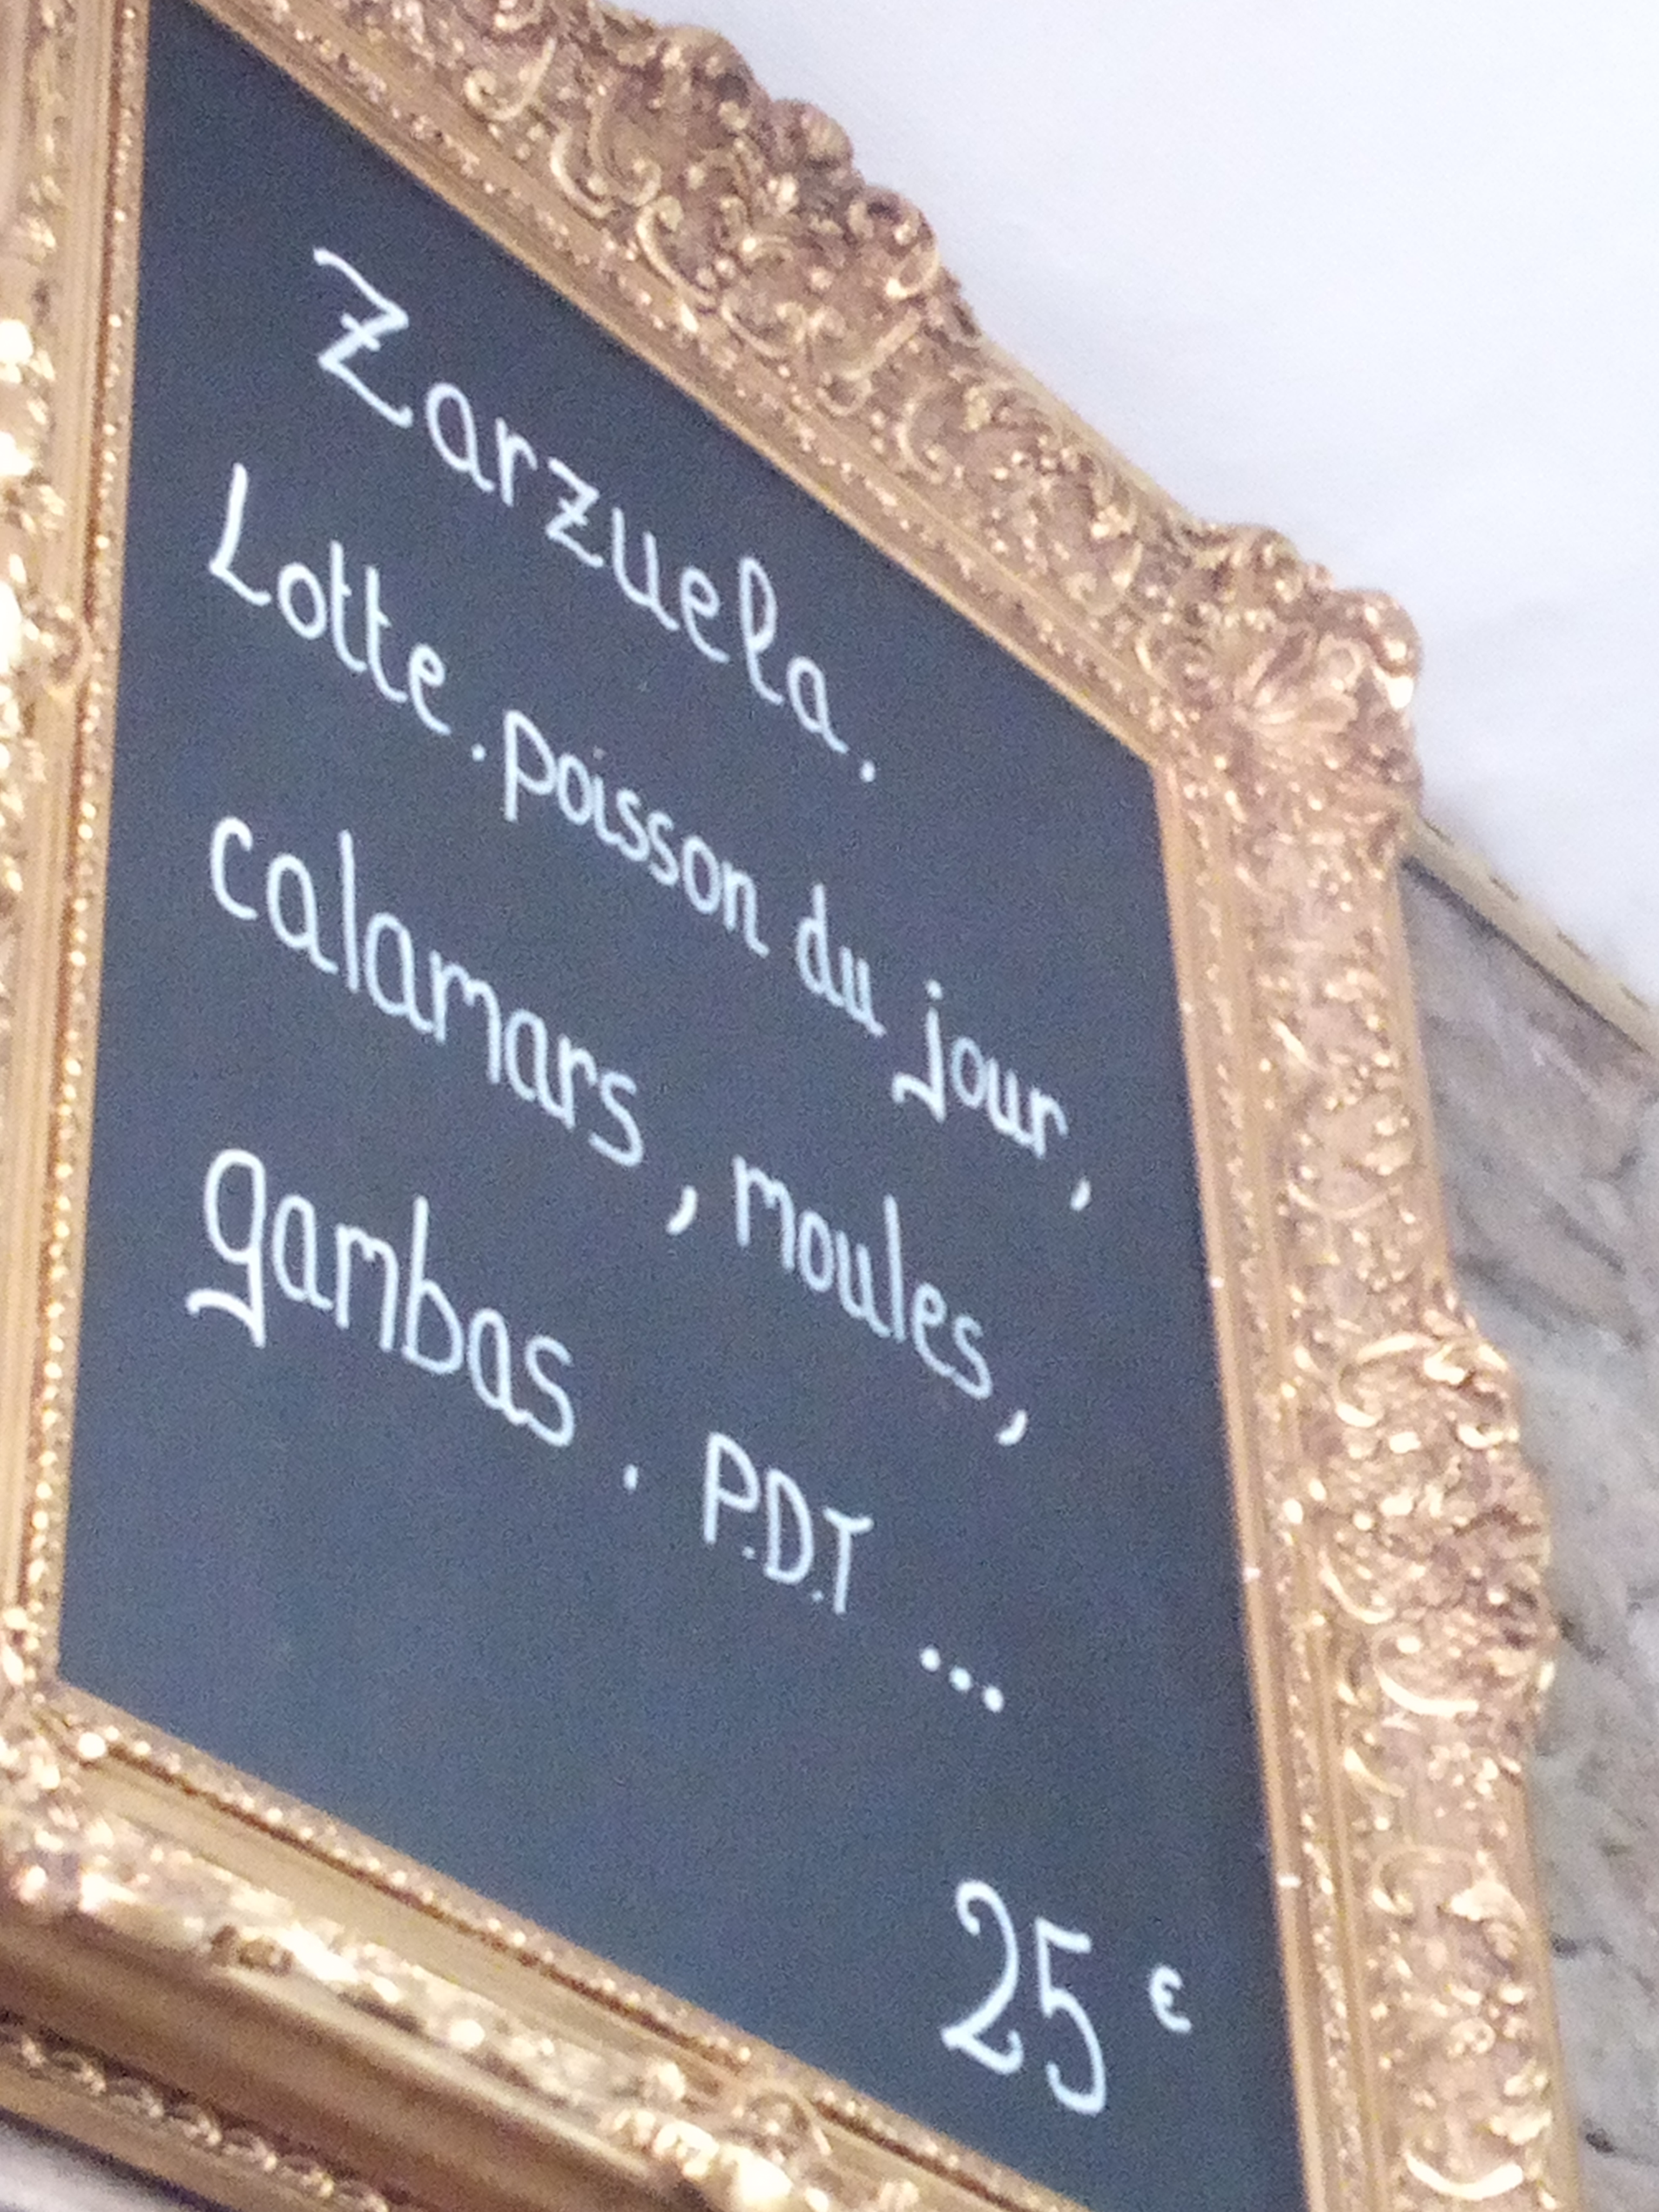 Zarzuela.
Lotte. poisson du jour,
calamars, moules,
gambas. P.D.T...
25€